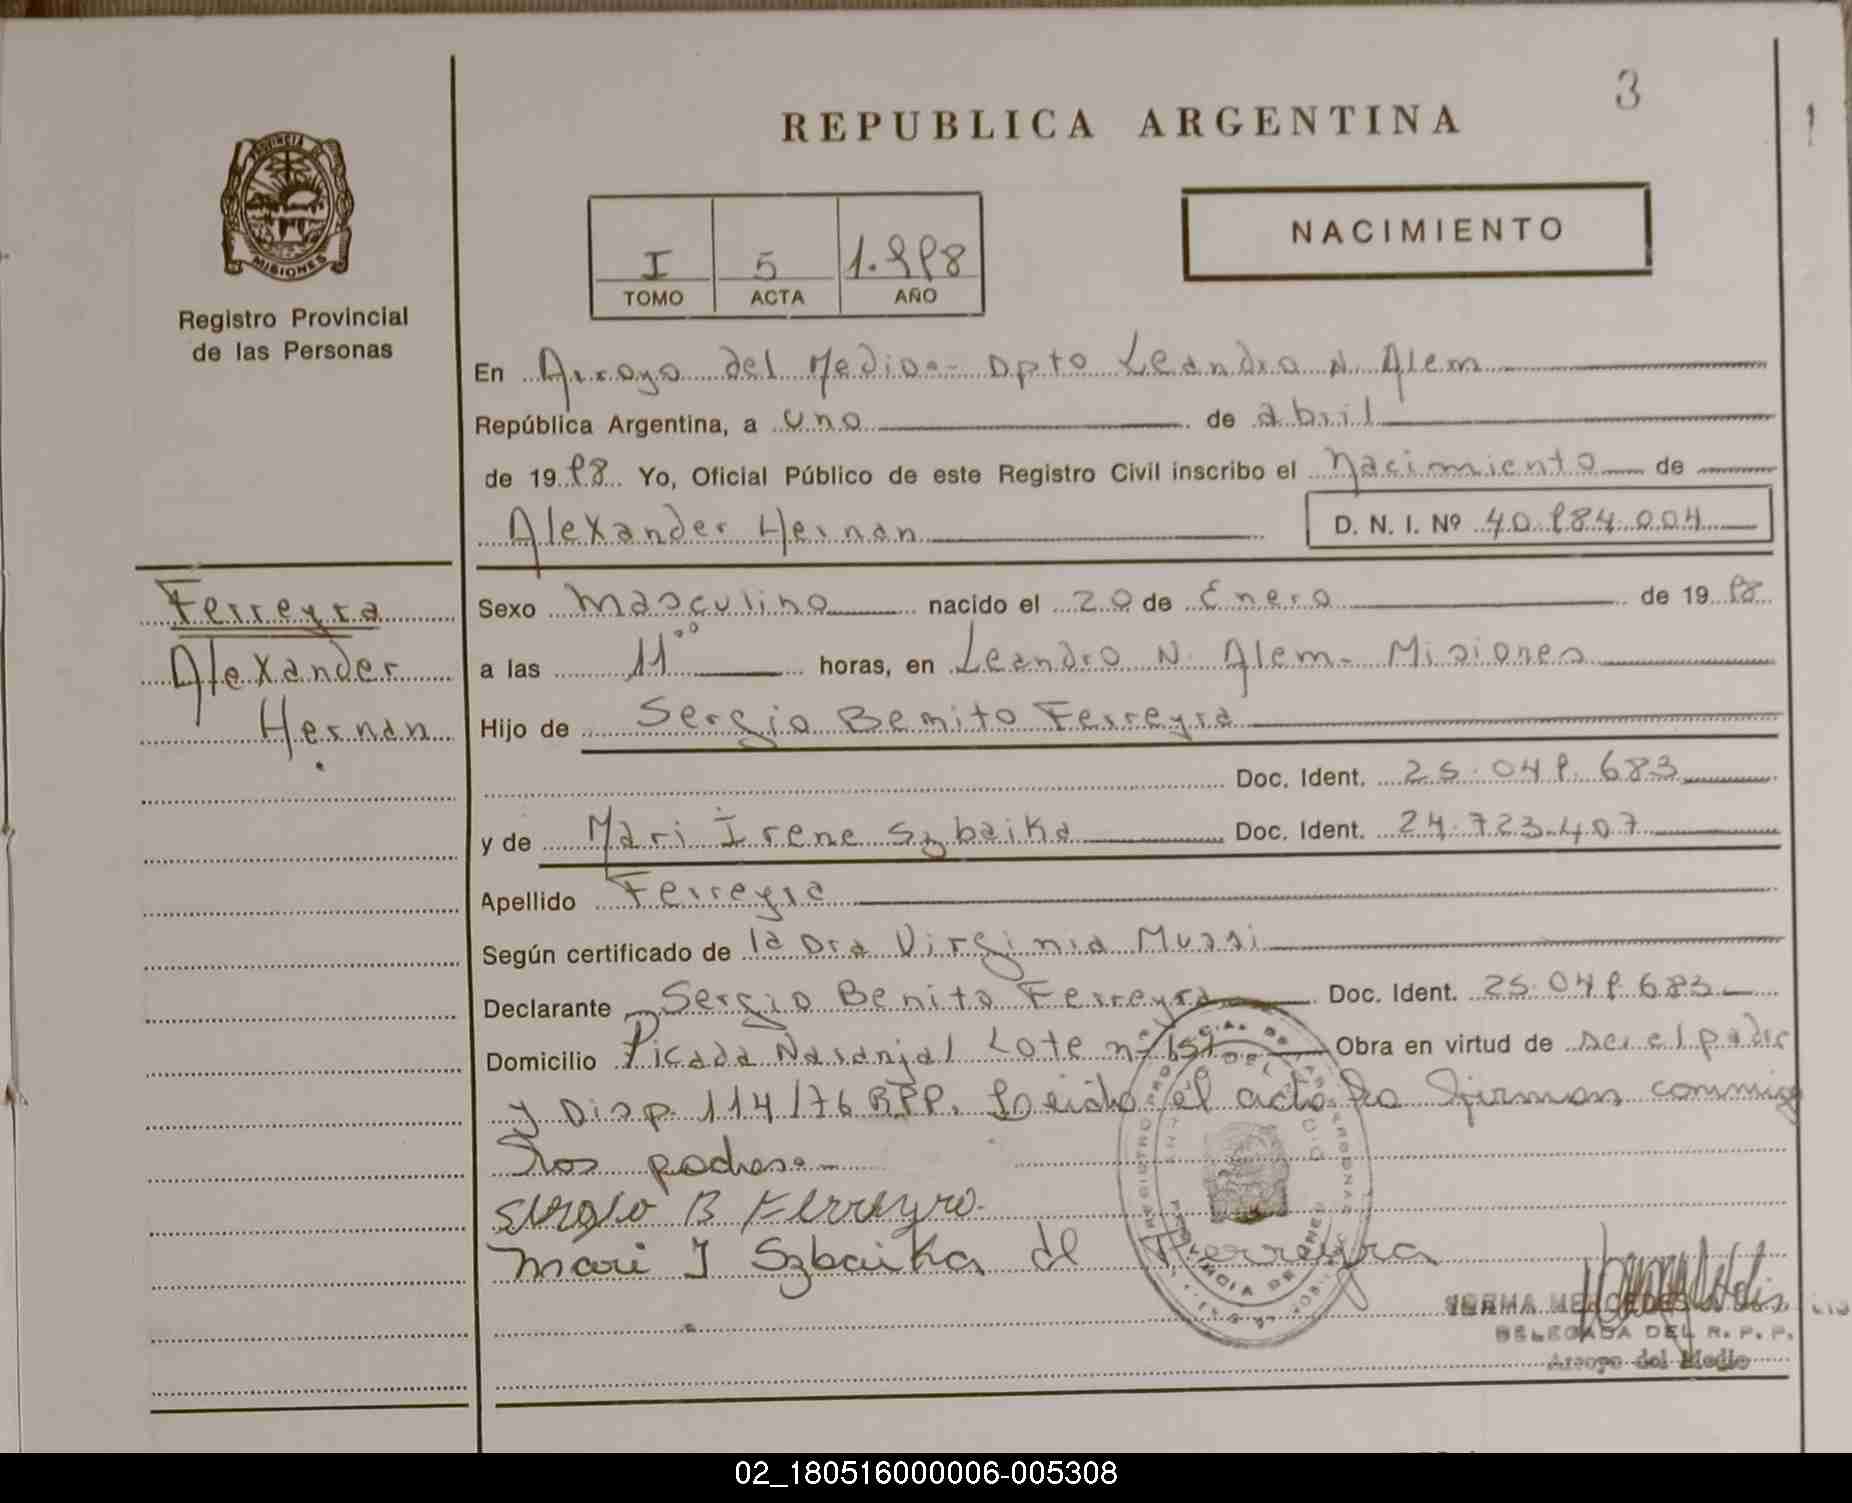 3
REPUBLICA ARGENTINA
NACIMIENTO
PROVINCIA DE
MISIONES
Registro Provincial
de las Personas
I 5 1.998
TOMO ACTA AÑO
En Arroyo del Medio.- Dpto Leandro N. Alem
República Argentina, a uno de abril
de 1998 Yo, Oficial Público de este Registro Civil inscribo el Nacimiento de
Alexander Hernan D. N. I. Nº 40.984.004
Ferreyra
Alexander
Hernan
Sexo Masculino nacido el 20 de Enero de 1998
a las 11°° horas, en Leandro N. Alem - Misiones
Hijo de Sergio Benito Ferreyra
Doc. Ident. 25.049.683
y de Mari Irene Szbaika Doc. Ident. 24.723.407
Apellido Ferreyra
Según certificado de la Dra Virginia Mussi
Declarante Sergio Benito Ferreyra Doc. Ident. 25.049.683
Domicilio Picada Naranjal Lote nº 151 Obra en virtud de ser el padre
y Disp. 114/76 RPP. Leido el acta la firman conmigo
los padres.-
Sergio B Ferreyra.
Mari I Szbaika de Ferreyra
PROVINCIA DE MISIONES
NORMA MERCEDES
DELEGADA DEL R. P. P.
Arroyo del Medio
02_180516000006-005308